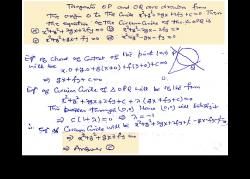 Tangents OP and OQ are drawn from
the origin O to the Circle x²+y²+2gx+2fy+c=0. Then
the equation to the Circum Circle of the Δ OPQ is
x²+y²+gx+fy=0
Eqn of Chord of Contact of the point (0,0)
will be x.0+y.0+g(x+0)+f(y+0)+c=0
⇒ gx+fy+c=0
Eqn of Circum Circle of Δ OPQ will be of the form
x²+y²+2gx+2fy+c+λ(gx+fy+c)=0
This passes through (0,0) Hence (0,0) will satisfy it
⇒ c(1+λ)=0 ⇒ λ=-1
∴ Eqn of Circum Circle will be x²+y²+2gx+2fy+c-gx-fy-c=0
⇒ x²+y²+gx+fy=0
⇒ Answer